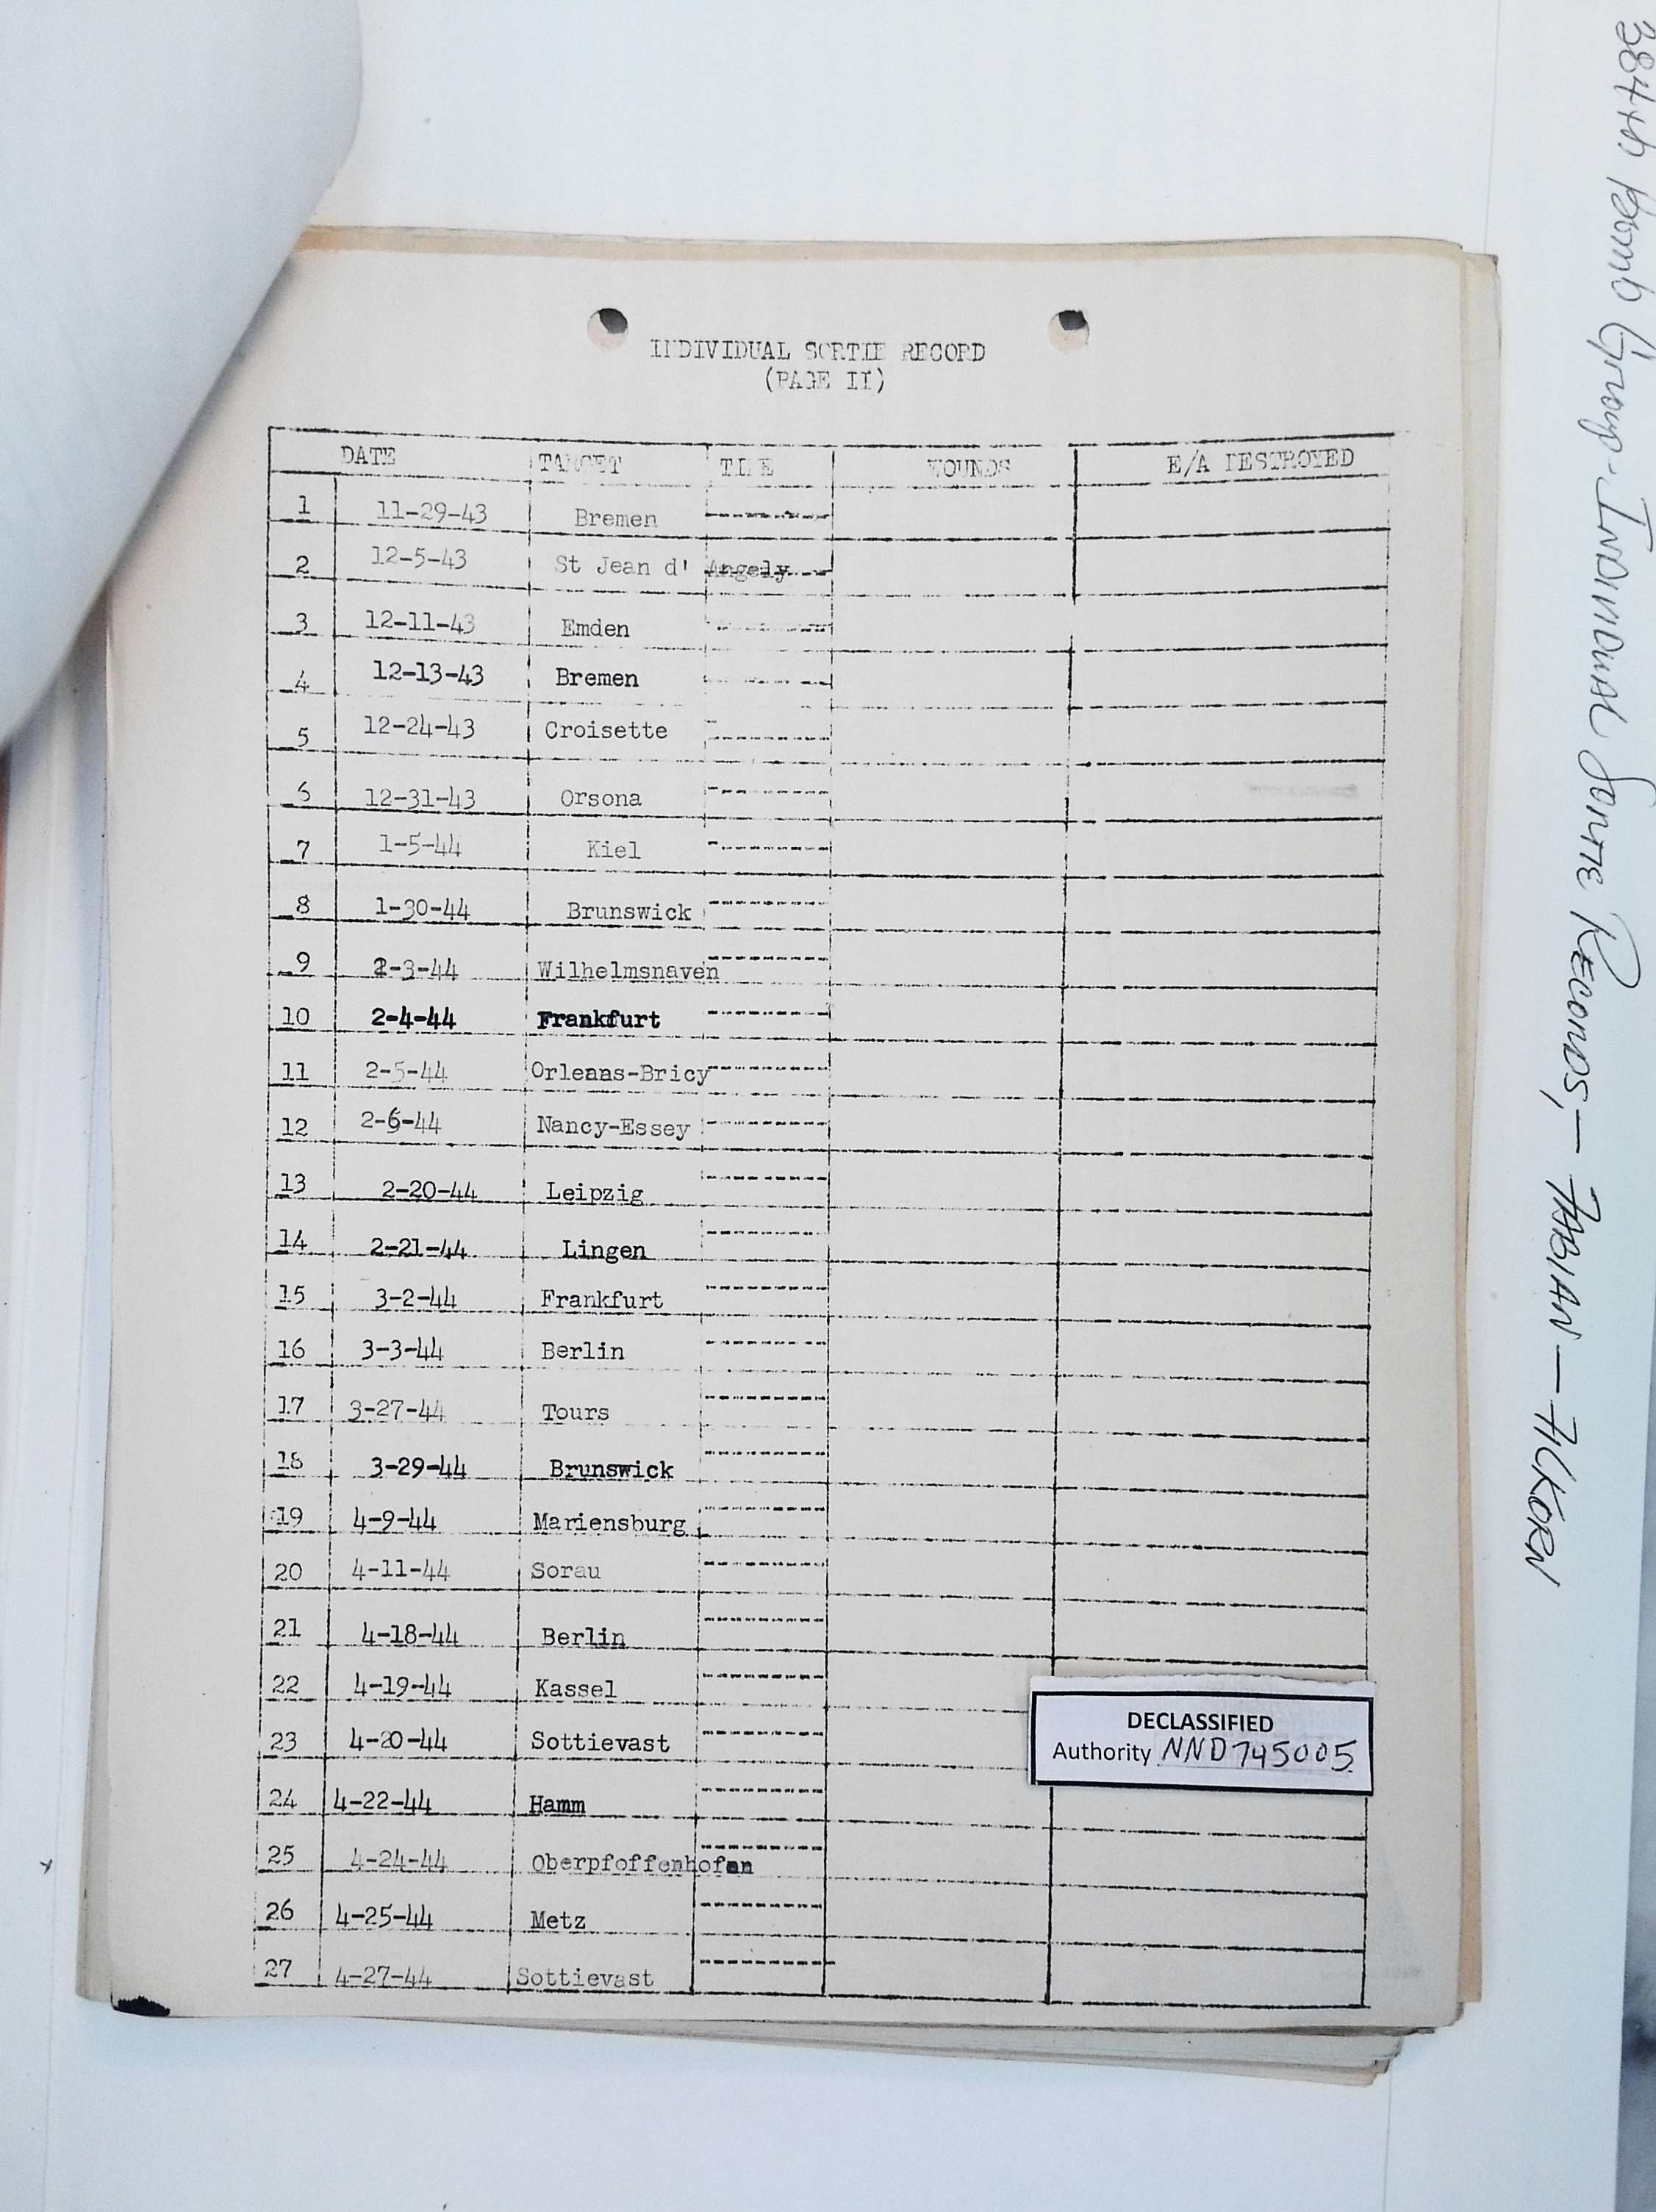 INDIVIDUAL SORTIE RECORD
(PAGE II)
DATE TARGET TIME WOUNDS E/A DESTROYED
1 11-29-43 Bremen
2 12-5-43 St Jean d' Angely
3 12-11-43 Emden
4 12-13-43 Bremen
5 12-24-43 Croisette
6 12-31-43 Orsona
7 1-5-44 Kiel
8 1-30-44 Brunswick
9 2-3-44 Wilhelmsnaven
10 2-4-44 Frankfurt
11 2-5-44 Orleans-Bricy
12 2-6-44 Nancy-Essey
13 2-20-44 Leipzig
14 2-21-44 Lingen
15 3-2-44 Frankfurt
16 3-3-44 Berlin
17 3-27-44 Tours
18 3-29-44 Brunswick
19 4-9-44 Mariensburg
20 4-11-44 Sorau
21 4-18-44 Berlin
22 4-19-44 Kassel
23 4-20-44 Sottievast
24 4-22-44 Hamm
25 4-24-44 Oberpfoffenhofen
26 4-25-44 Metz
27 4-27-44 Sottievast
DECLASSIFIED
Authority NND745005
384th Bomb Group - Individual Sortie Records, - FABIAN - HCKORN